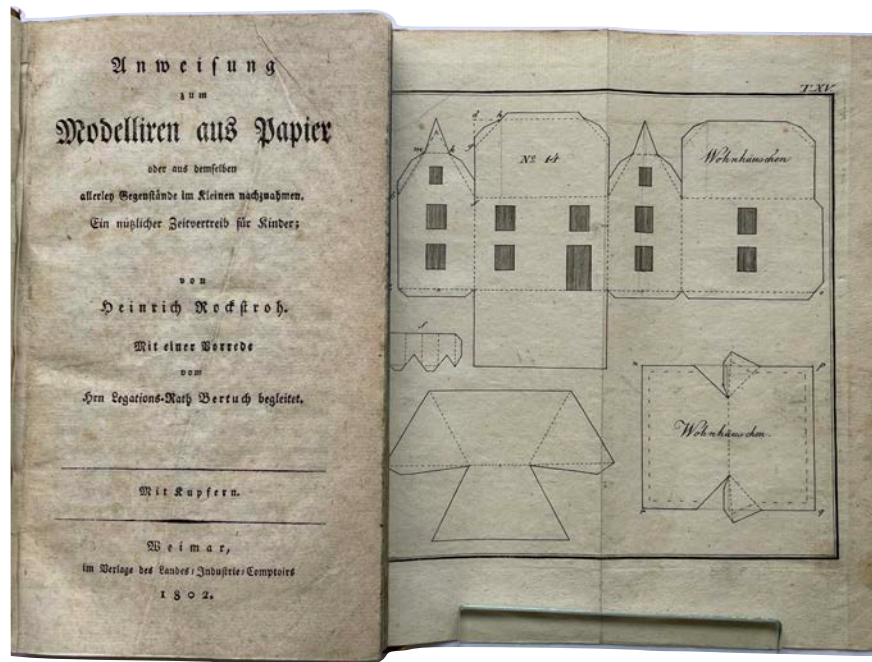 Anweisung
zum
Modelliren aus Papier
oder aus demselben
allerley Gegenstände im Kleinen nachzuahmen.
Ein nützlicher Zeitvertreib für Kinder;
von
Heinrich Rockstroh.
Mit einer Vorrede
vom
Hrn Legations-Rath Bertuch begleitet.
Mit Kupfern.
Weimar,
im Verlage des Landes-Industrie-Comptoirs
1802.
T. XV.
d h
No 14
Wohnhäuschen
Wohnhäuschen.